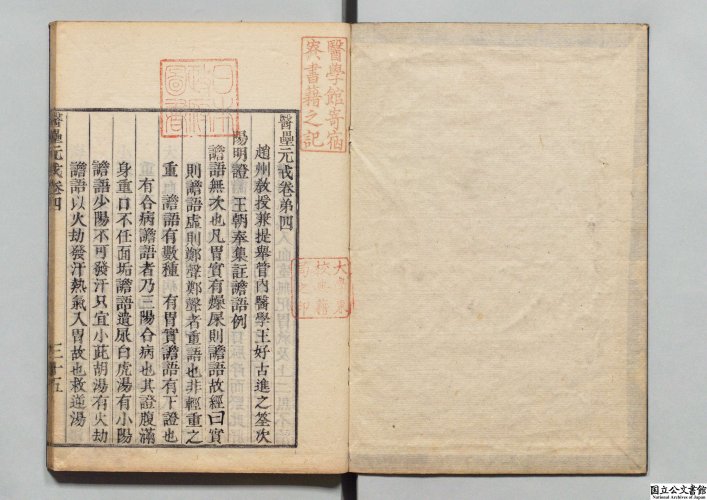 醫壘元戎卷第四
趙州敎授兼提舉管內醫學王好古進之篹次
陽明證 王朝奉集註譫語例
譫語無次也凡胃實有燥屎則譫語故經曰實
則譫語虛則鄭聲鄭聲者重語也非輕重之
重 譫語有數種 有胃實譫語有下證也
有合病譫語者乃三陽合病也其證腹滿
身重口不任面垢譫語遺尿白虎湯有小陽
譫語少陽不可發汗只宜小茈胡湯有火劫
譫語以火劫發汗熱氣入胃故也救逆湯
醫壘元戎卷四
三十五
醫學館寄宿
寮書籍之記
日本
政府
圖書
國立公文書館
National Archives of Japan